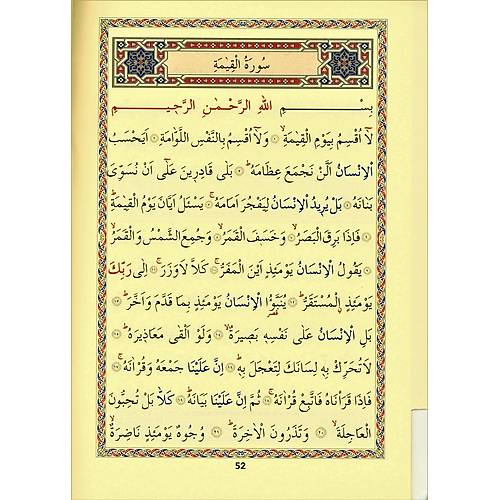 سُورَةُ الْقِيٰمَةِ
بِسْمِ اللّٰهِ الرَّحْمٰنِ الرَّحٖيمِ
لَٓا اُقْسِمُ بِيَوْمِ الْقِيٰمَةِۙ ﴿١﴾ وَلَٓا اُقْسِمُ بِالنَّفْسِ اللَّوَّامَةِ ﴿٢﴾ اَيَحْسَبُ
الْاِنْسَانُ اَلَّنْ نَجْمَعَ عِظَامَهُۜ ﴿٣﴾ بَلٰى قَادِرٖينَ عَلٰٓى اَنْ نُسَوِّىَ
بَنَانَهُ ﴿٤﴾ بَلْ يُرٖيدُ الْاِنْسَانُ لِيَفْجُرَ اَمَامَهُۚ ﴿٥﴾ يَسْـَٔلُ اَيَّانَ يَوْمُ الْقِيٰمَةِۜ
﴿٦﴾ فَاِذَا بَرِقَ الْبَصَرُۙ ﴿٧﴾ وَخَسَفَ الْقَمَرُۙ ﴿٨﴾ وَجُمِعَ الشَّمْسُ وَالْقَمَرُۙ
﴿٩﴾ يَقُولُ الْاِنْسَانُ يَوْمَئِذٍ اَيْنَ الْمَفَرُّۚ ﴿١٠﴾ كَلَّا لَا وَزَرَۜ ﴿١١﴾ اِلٰى رَبِّكَ
يَوْمَئِذٍ الْمُسْتَقَرُّۜ ﴿١٢﴾ يُنَبَّؤُا الْاِنْسَانُ يَوْمَئِذٍ بِمَا قَدَّمَ وَاَخَّرَۜ ﴿١٣﴾
بَلِ الْاِنْسَانُ عَلٰى نَفْسِهٖ بَصٖيرَةٌۙ ﴿١٤﴾ وَلَوْ اَلْقٰى مَعَاذٖيرَهُۜ ﴿١٥﴾
لَا تُحَرِّكْ بِهٖ لِسَانَكَ لِتَعْجَلَ بِهٖۜ ﴿١٦﴾ اِنَّ عَلَيْنَا جَمْعَهُ وَقُرْاٰنَهُۚ ﴿١٧﴾
فَاِذَا قَرَاْنَاهُ فَاتَّبِعْ قُرْاٰنَهُۚ ﴿١٨﴾ ثُمَّ اِنَّ عَلَيْنَا بَيَانَهُۜ ﴿١٩﴾ كَلَّا بَلْ تُحِبُّونَ
الْعَاجِلَةَۙ ﴿٢٠﴾ وَتَذَرُونَ الْاٰخِرَةَۜ ﴿٢١﴾ وُجُوهٌ يَوْمَئِذٍ نَاضِرَةٌۙ
52